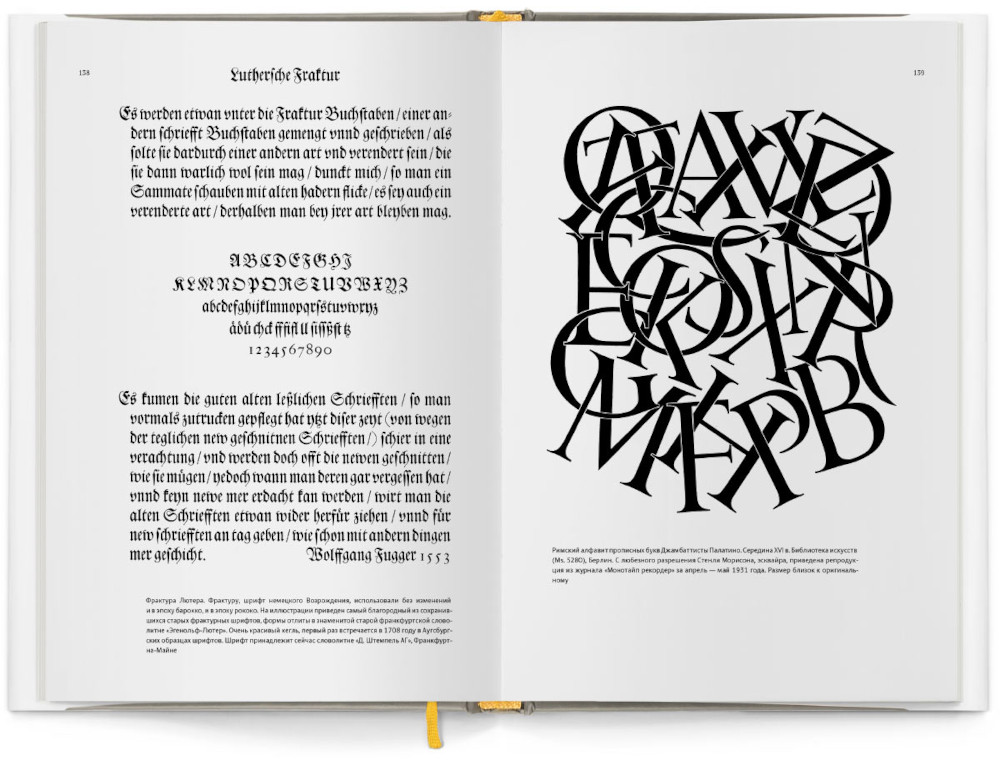 138
Luthersche Fraktur
Es werden etwan vnter die Fraktur Buchstaben / einer an-
dern schriefft Buchstaben gemengt vnnd geschrieben / als
solte sie dardurch einer andern art vnd verendert sein / die
sie dann warlich wol sein mag / dunckt mich / so man ein
Sammate schauben mit alten hadern flicke / es sey auch ein
verenderte art / derhalben man bey jrer art bleyben mag.
ABCDEFGHJ
KLMNOPQRSTUVWXYZ
abcdefghijklmnopqrſstuvwxyz
äöü ch ck ff fi fl ll ſi ſſ ß ſt tz
1234567890
Es kumen die guten alten leßlichen Schriefften / so man
vormals zutrucken gepflegt hat ytzt diser zeyt (von wegen
der teglichen new geschnitnen Schriefften /) schier in eine
verachtung / vnd werden doch offt die newen geschnitten /
wie sie mügen / yedoch wann man deren gar vergessen hat /
vnnd keyn newe mer erdacht kan werden / wirt man die
alten Schriefften etwan wider herfür ziehen / vnnd für
new schriefften an tag geben / wie schon mit andern dingen
mer geschicht. Wolffgang Fugger 1553
Фрактура Лютера. Фрактуру, шрифт немецкого Возрождения, использовали без изменений
и в эпоху барокко, и в эпоху рококо. На иллюстрации приведен самый благородный из сохранив-
шихся старых фрактурных шрифтов, формы отлиты в знаменитой старой франкфуртской слово-
литне «Эгенольф–Лютер». Очень красивый кегль, первый раз встречается в 1708 году в Аугсбург-
ских образцах шрифтов. Шрифт принадлежит сейчас словолитне «Д. Штемпель АГ», Франкфурт-
на-Майне
139
Римский алфавит прописных букв Джамбаттисты Палатино. Середина XVI в. Библиотека искусств
(Ms. 5280), Берлин. С любезного разрешения Стенли Морисона, эсквайра, приведена репродук-
ция из журнала «Монотайп рекордер» за апрель — май 1931 года. Размер близок к оригиналь-
ному